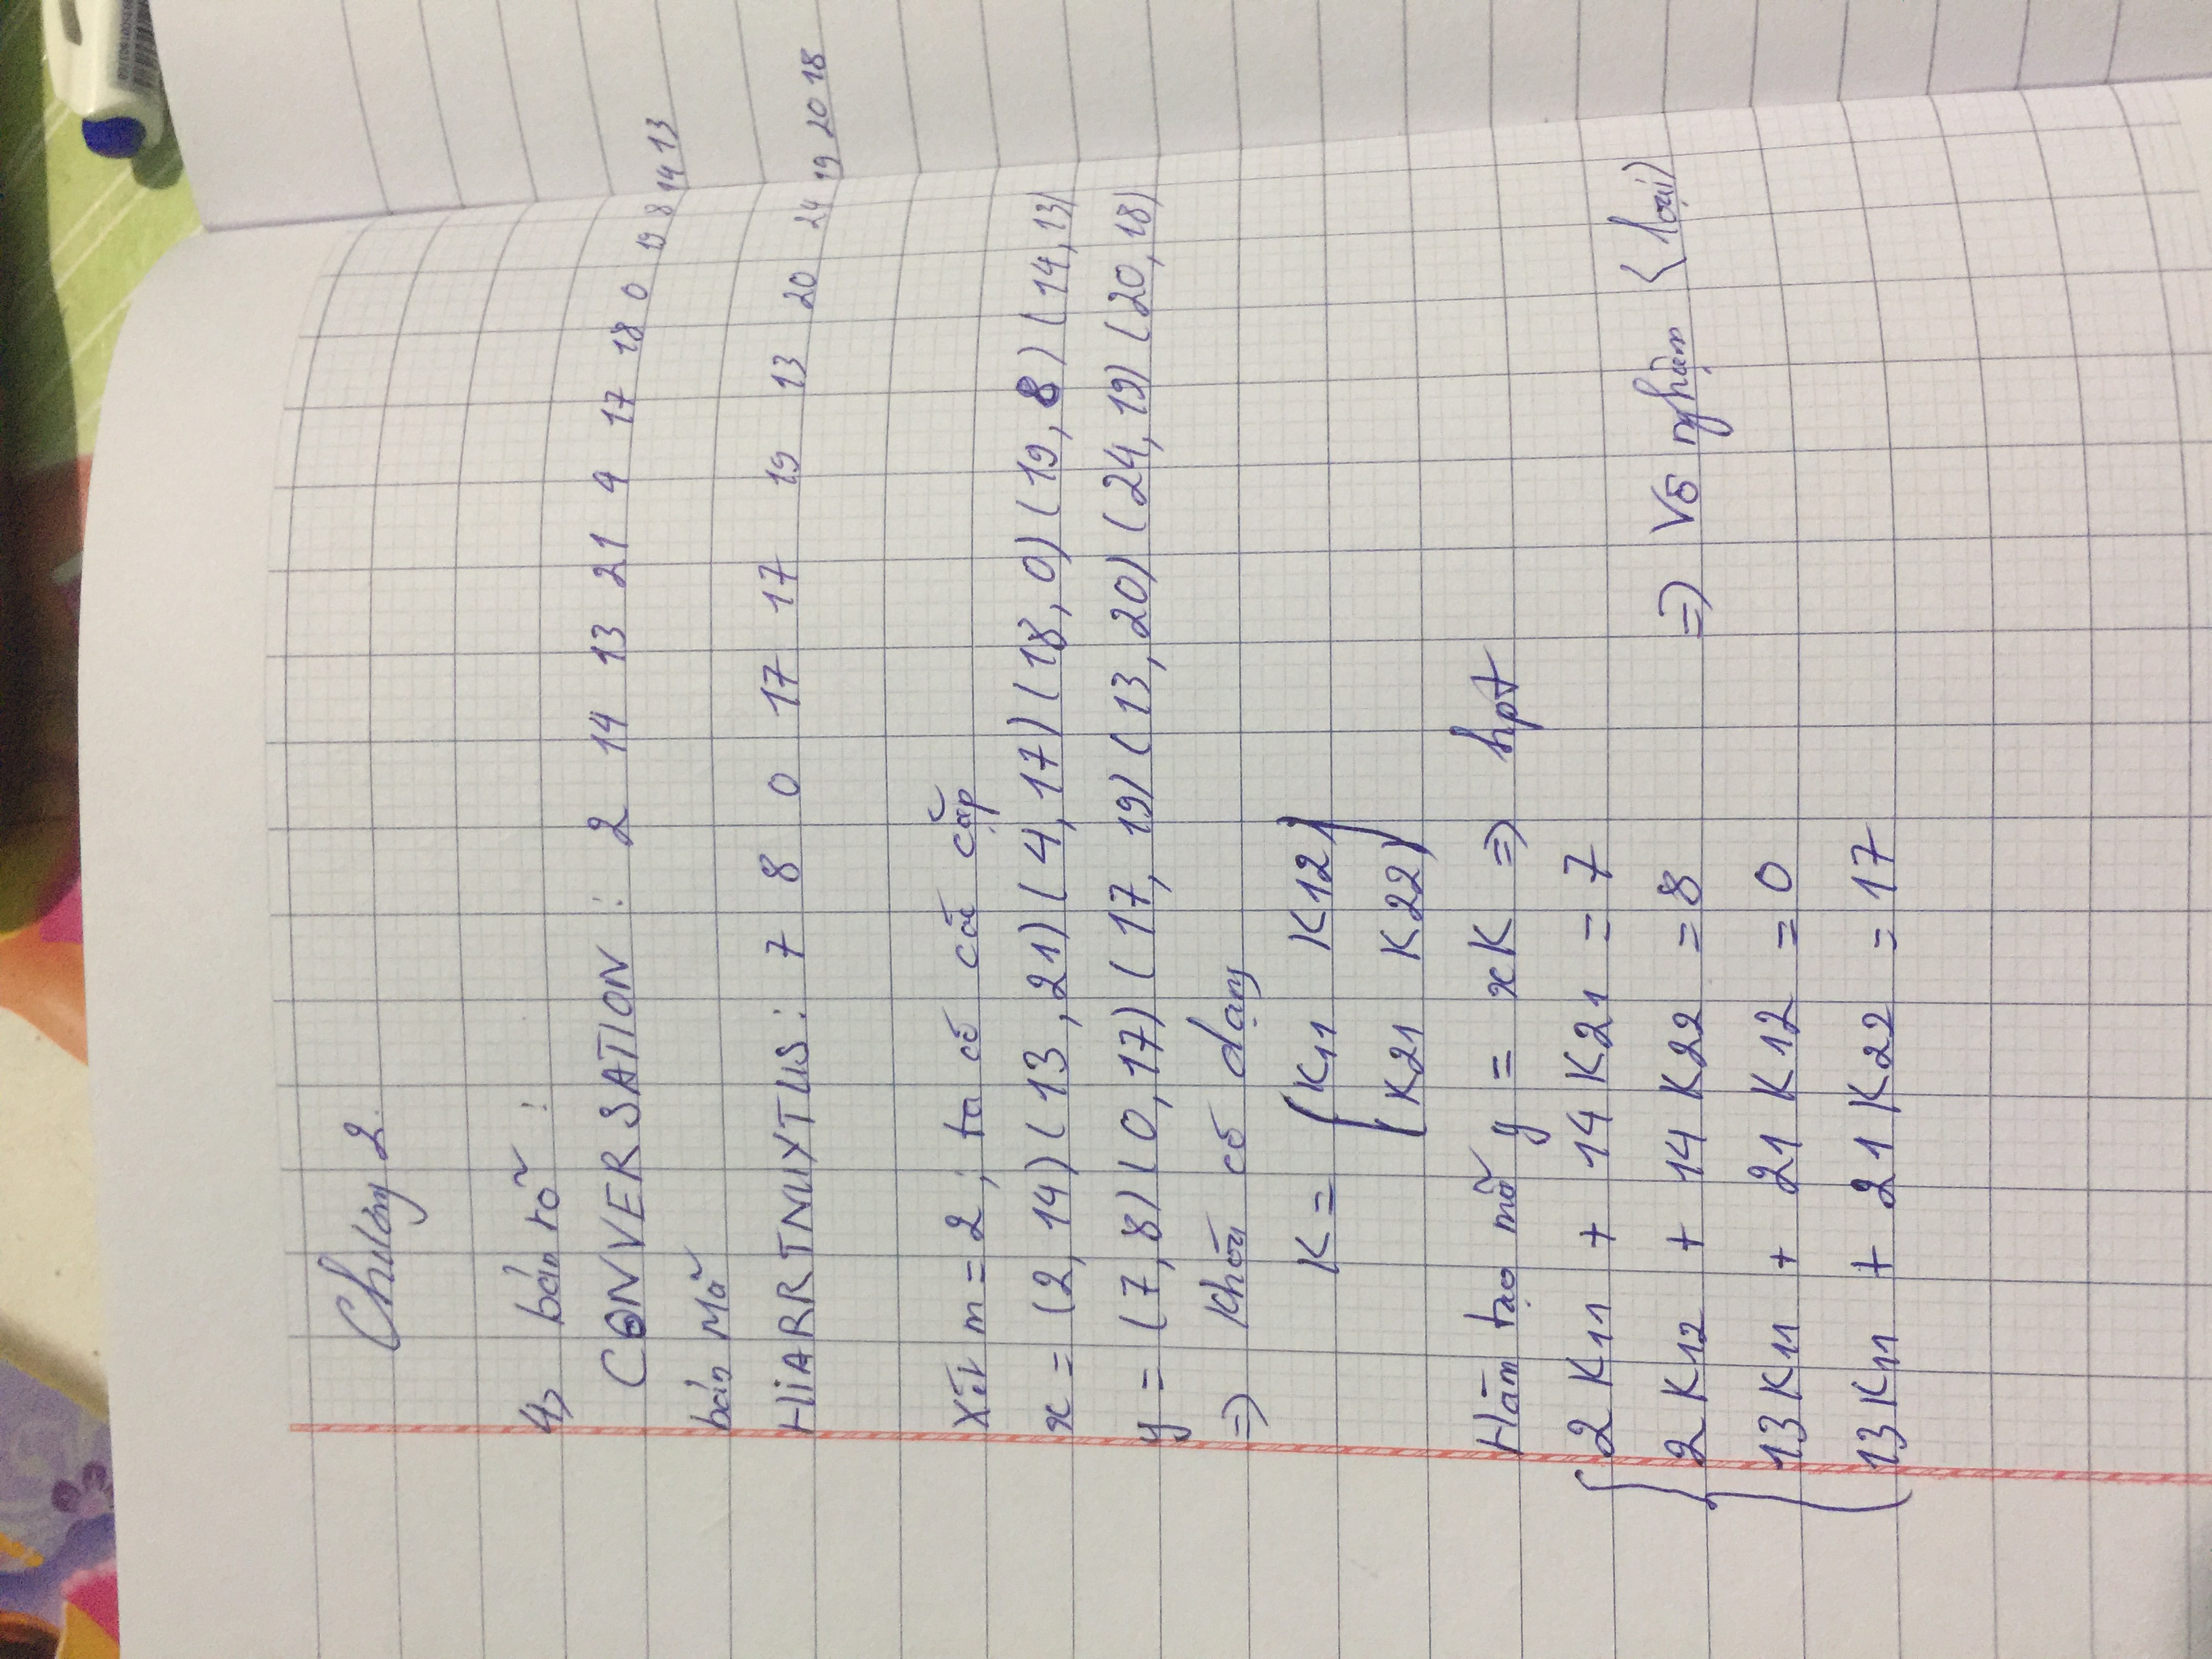 Chương 2.
4> bản rõ :
CONVERSATION : 2 14 13 21 4 17 18 0 19 8 14 13
bản Mã
HiARRTNUYTUS : 7 8 0 17 17 19 13 20 24 19 20 18
Xét m = 2 ; ta có các cặp
x = (2, 14) (13, 21) (4, 17) (18, 0) (19, 8) (14, 13)
y = (7, 8) (0, 17) (17, 19) (13, 20) (24, 19) (20, 18)
=> Khóa có dạng
K = (K11 K12)
(K21 K22)
Hàm tạo mã y = xK => hpt
2 K11 + 14 K21 = 7
2 K12 + 14 K22 = 8 => Vô nghiệm (loại)
13 K11 + 21 K12 = 0
13 K11 + 21 K22 = 17